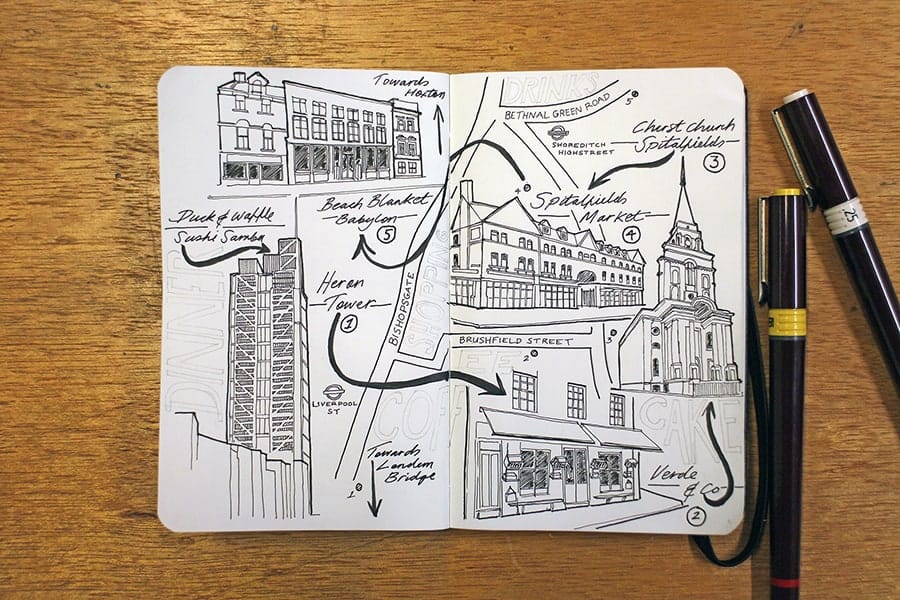 Towards
Hoxton
Duck & Waffle
Sushi Samba
DINNER
Beach Blanket
Babylon
5
Heron
Tower
1
LIVERPOOL
ST
Towards
London
Bridge
1
BISHOPSGATE
SHOPPING
COFFEE
DRINKS
BETHNAL GREEN ROAD
5
SHOREDITCH
HIGHSTREET
Christ Church
Spitalfields
3
4
Spitalfields
Market
4
BRUSHFIELD STREET
2
3
CAKE
Verde
& Co
2